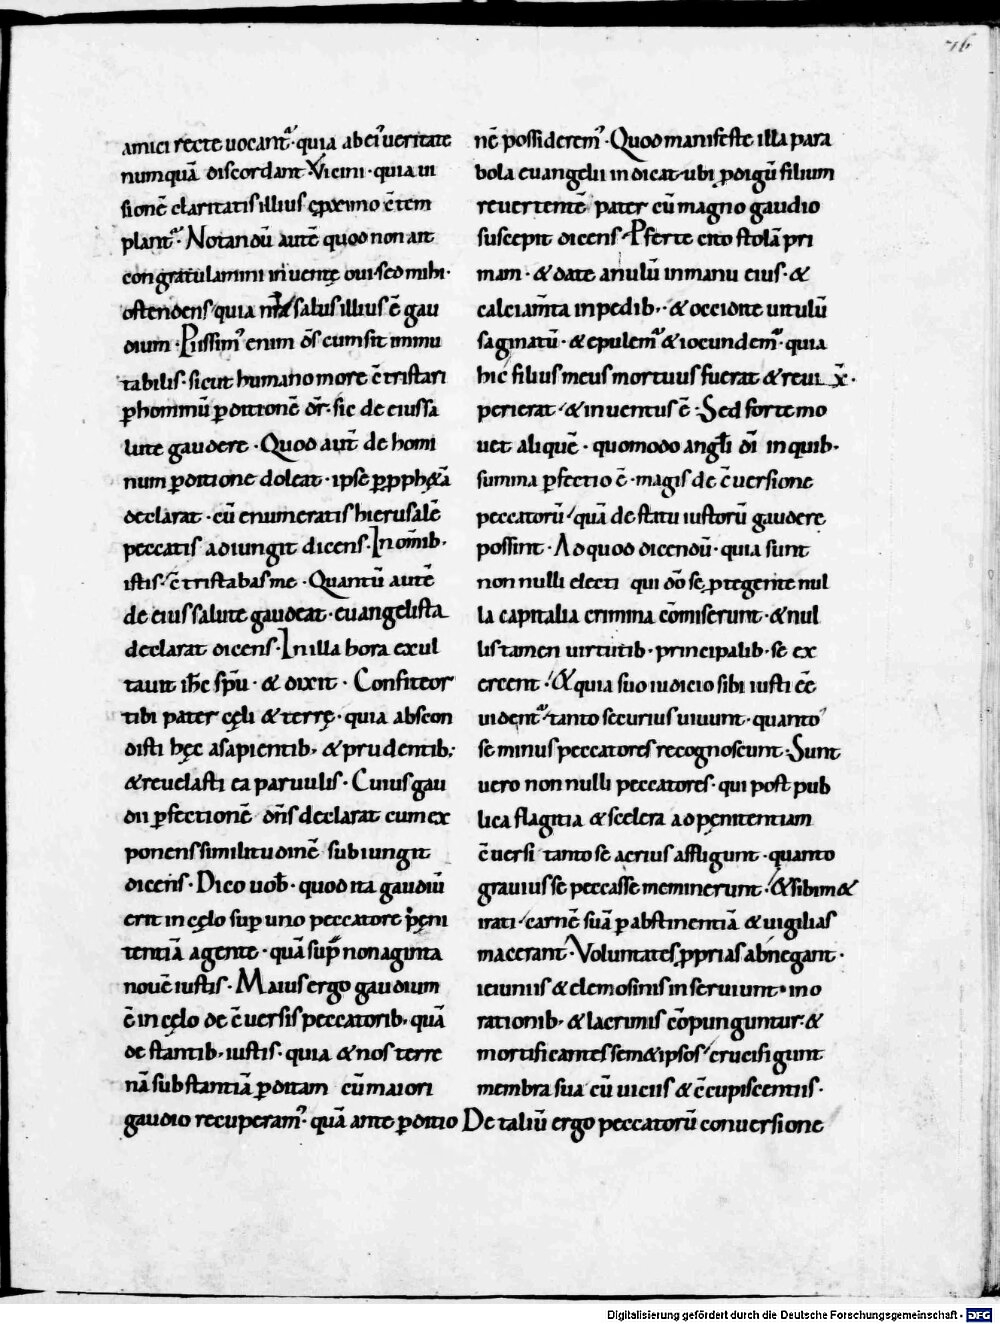 76
amici recte uocant᷑· quia ab ei᷒ ueritate
numquā discordant· Vicini · quia ui
sionē claritatis illius ꝓximo c̄tem
plant᷑· Notandū autē quod non ait
congratulamini inuente oui· sed mihi·
ostendens quia nr̄a salus illius ē gau
dium· Piissim᷒ enim d̄s cum sit inmu
tabilis· sicut humano more c̄tristari
ꝑ hominū ꝑditionē dr̄· sic de eius sa
lute gaudere · Quod aut̄ de homi
num ꝑditione doleat· ipse ꝑ ꝓph&ā
declarat · cū enumeratis hierusalē
peccatis adiungit dicens· In om̄ib·
istis· c̄tristabas me · Quantū autē
de eius salute gaudeat· euangelista
declarat dicens· In illa hora exul
tauit ih̄c sp̄u · & dixit · Confiteor
tibi pater cęli & terrę· quia abscon
disti hęc a sapientib· & prudentib;
& reuelasti ea paruulis· Cuius gau
dii ꝑfectionē dn̄s declarat cum ex
ponens similitudinē subiungit
dicens· Dico uob̄· quod ita gaudiū
erit in cęlo sup̲ uno peccatore pęni
tentiā agente· quā sup̄ nonaginta
nouē iustis· Maius ergo gaudium
ē in cęlo de c̄uersis peccatorib· quā
de stantib· iustis· quia & nos terre
nā substantiā ꝑditam cū maiori
gaudio recuperam᷒· quā ante ꝑditio
nē possiderem᷒ · Quod manifeste illa para
bola euangelii indicat· ubi ꝓdigū filium
reuertentē pater cū magno gaudio
suscepit dicens· Pferte cito stolā pri
mam· & date anulū in manu eius· &
calciam̄ta in pedib·· & occidite uitulū
saginatū· & epulem᷒ & iocundem᷒· quia
hic filius meus mortuus fuerat & reui x̄·
perierat· & inuentus ē· Sed forte mo
uet aliquē · quomodo angl̄i dī in quib·
summa ꝑfectio ē· magis de c̄uersione
peccatorū· quā de statu iustorū gaudere
possint· Ad quod dicendū· quia sunt
non nulli electi qui dō se ꝓtegente nul
la capitalia crimina cōmiserunt· & nul
lis tamen uirtutib· principalib· se ex
ercent· & quia suo iudicio sibi iusti eē
uident᷑· tanto securius uiuunt· quanto
se minus peccatores recognoscunt· Sunt
uero non nulli peccatores· qui post pub
lica flagitia & scelera ad penitentiam
c̄uersi tanto se acrius affligunt· quanto
grauius se peccasse meminerunt· & sibim&
irati· carnē suā ꝑ abstinentiā & uigilias
macerant· Voluntates ꝓprias abnegant·
ieiuniis & elemosinis inseruiunt· in o
rationib· & lacrimis cōpunguntur· &
mortificantes sem& ipsos· crucifigunt
membra sua cū uiciis & c̄cupiscentiis·
De taliū ergo peccatorū conuersione
Digitalisierung gefördert durch die Deutsche Forschungsgemeinschaft - DFG